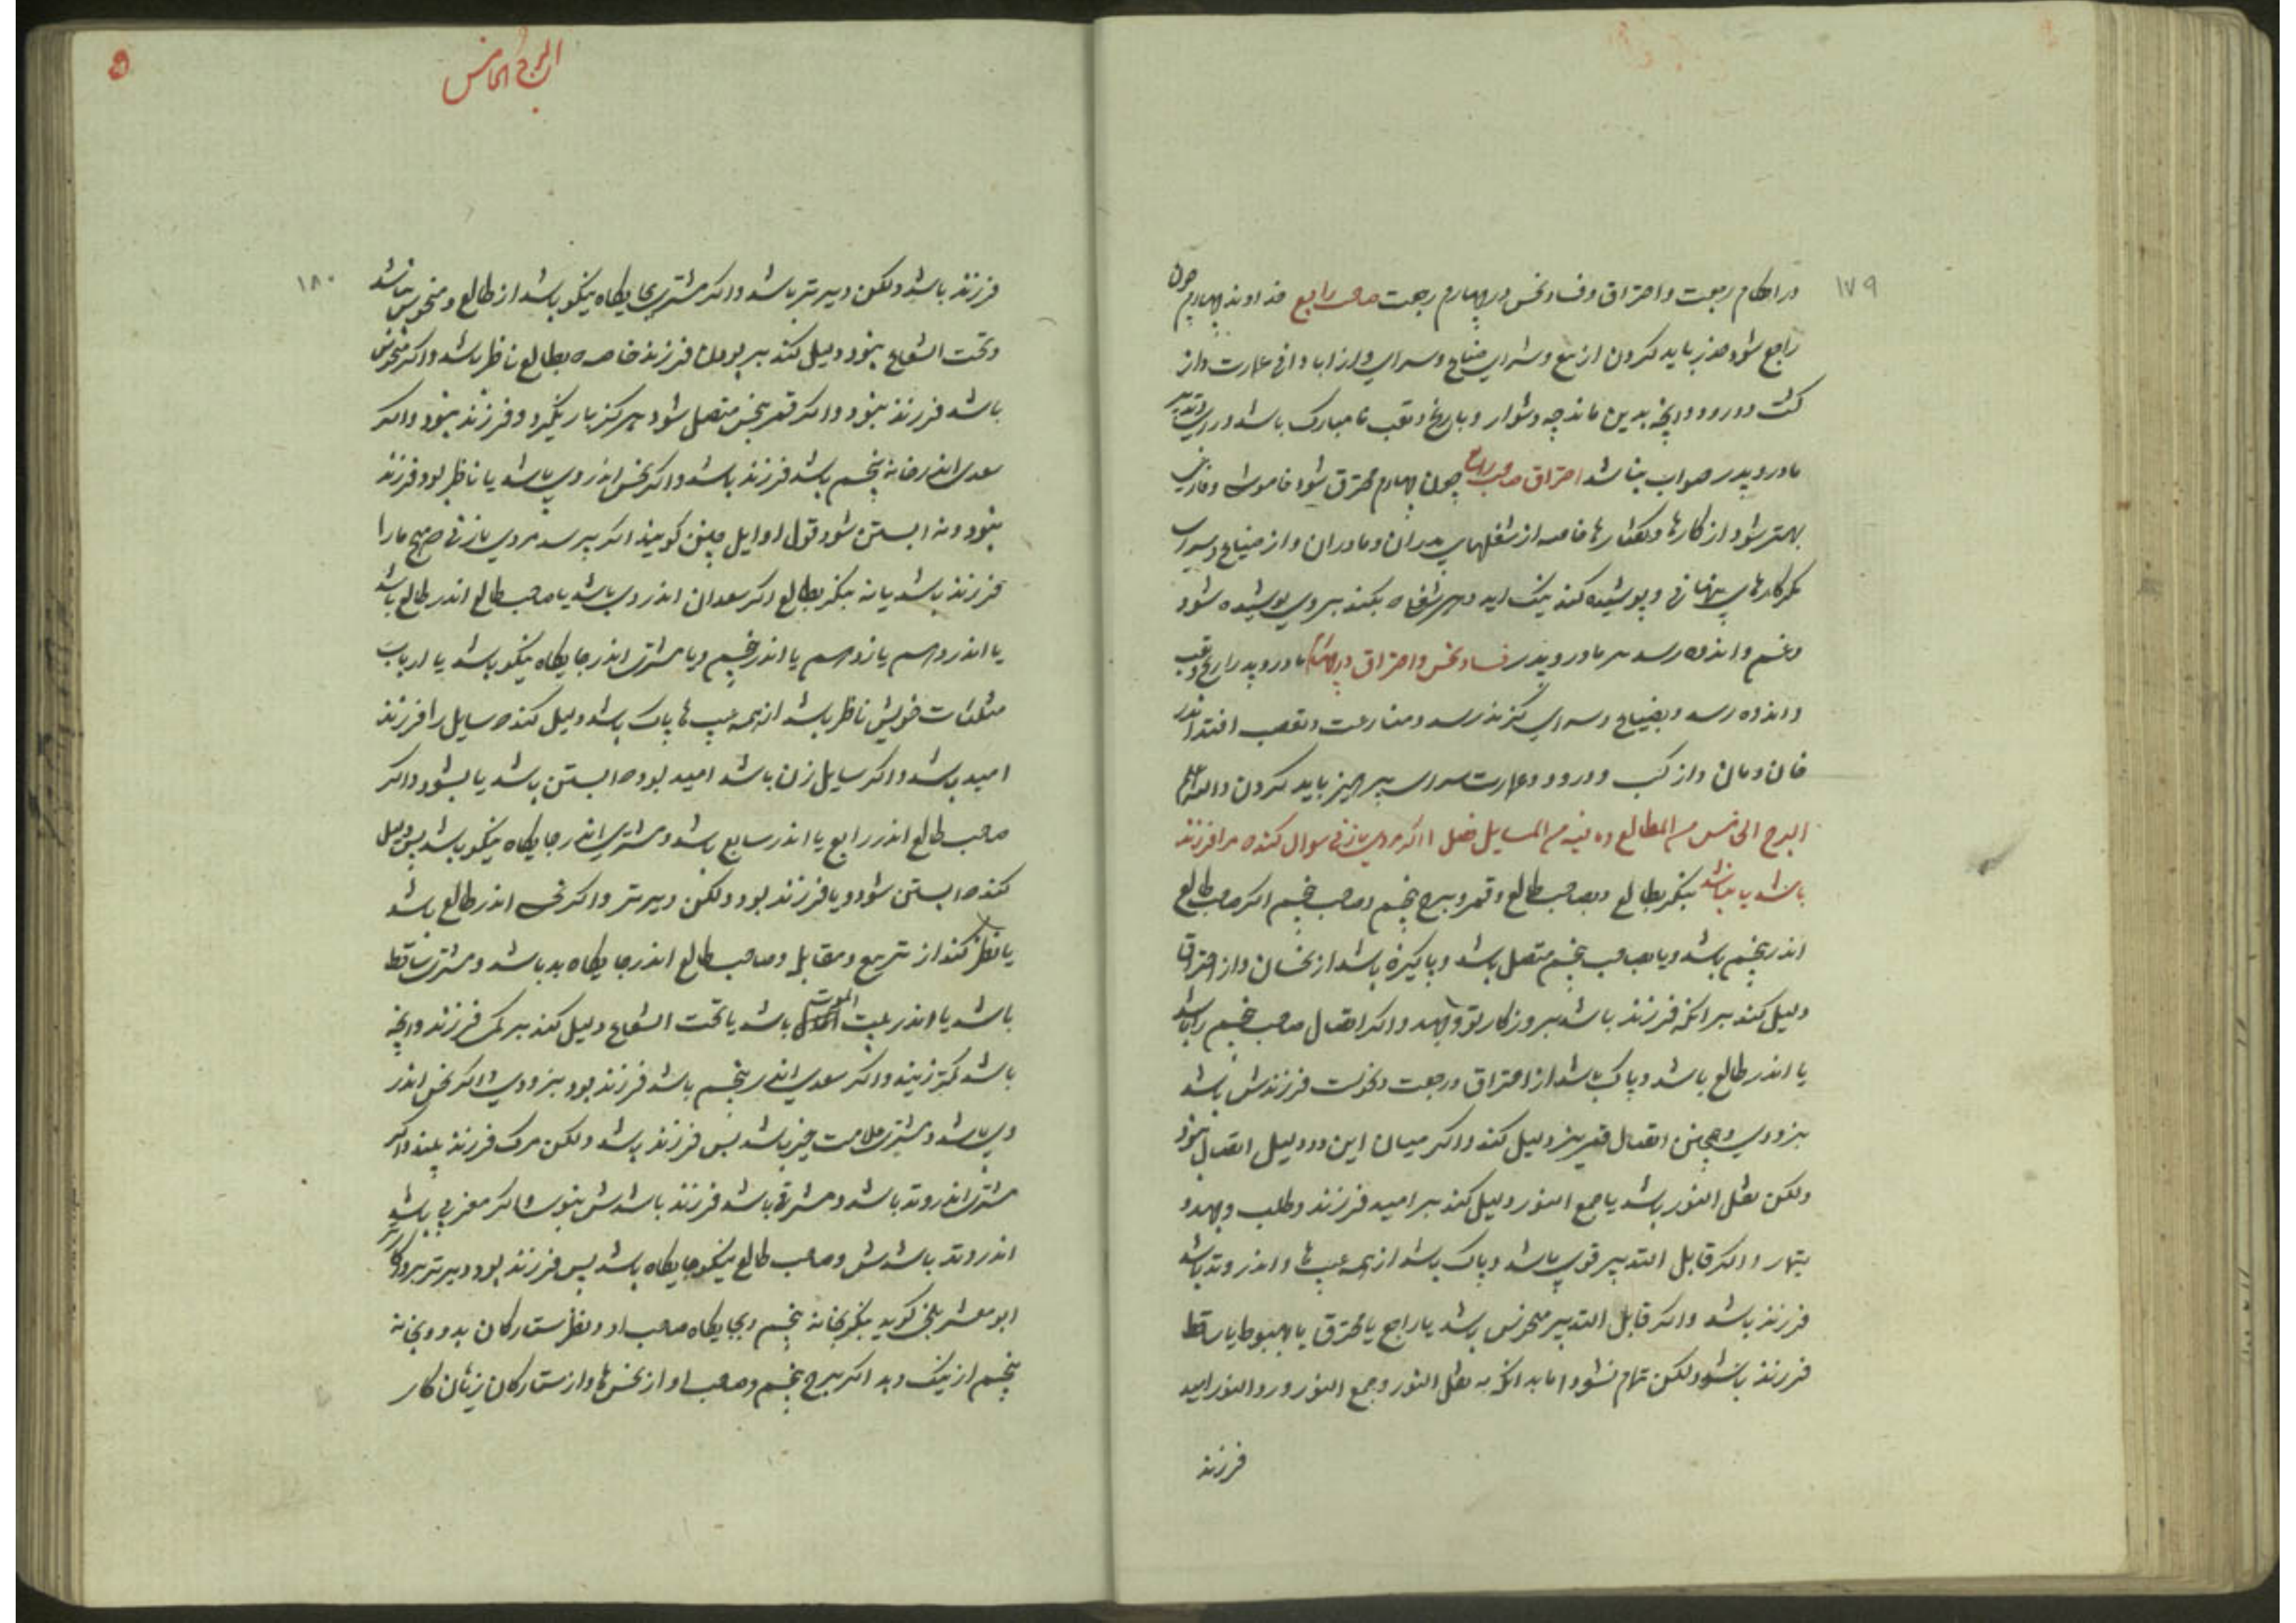 ۱۷۹
در احکام رجعت و احتراق و فساد نحس در چهارم رجعت صاحب رابع خداوند چهارم چون
راجع شود حذر باید کردن از بیع و شراء ضیاع و سرای و از ابادانی عمارت و از
کشت و درود و انچه بدین ماند چه دشوار و با رنج و تعب نا مبارک باشد و رای و تدبیر
مادر و پدر صواب نباشد احتراق صاحب رابع چون چهارم محترق شود خاموشی
بهتر شود از کارها و گفتارها خاصه از شغلهای پدران و مادران و از ضیاع و سرای
مگر کارهای پنهانی و پوشیده کند نیک اید و هر بکند بر وی پوشیده شود
و غم و اندوه رسد مر مادر و پدر فساد نحس و احتراق در چهارم مادر و پدر را رنج و تعب
و اندوه رسد و بضیاع و سرای گزند رسد و منازعت و تعصب افتد اندر
خان و مان و از کشت و درود و عمارت سرای پرهیز باید کردن والله اعلم
البرج الخامس من الطالع وما فیه من المسایل فصل ا اگر مردی یا زنی سوال کند که مرا فرزند
باشد یا نباشد بنگر بطالع و بصاحب طالع و قمر و ببرج پنجم و صاحب پنجم اگر صاحب طالع
اندر پنجم باشد و یا بصاحب پنجم متصل باشد و پاکیزه باشد از نحسان و از احتراق
دلیل کند بر انکه فرزند باشد بروزکار و اگر اتصال صاحب پنجم را باشد
یا اندر طالع باشد و پاک باشد از احتراق و رجعت و نحوست فرزندش باشد
بزودی و همچنین اتصال قمر نیز دلیل کند و اگر میان این دو دلیل اتصال نبود
ولکن نقل النور باشد یا جمع النور دلیل کند بر امید فرزند و طلب و جهد و
تیمار و اگر قابل التدبیر قوی باشد و پاک باشد از همه عیب ها و اندر وتد باشد
فرزند باشد و اگر قابل التدبیر منحوس باشد یا راجع یا محترق یا بهبوط یا ساقط
فرزند باشد ولکن تمام نشود اما بدانکه به نقل النور و جمع النور و رد النور امید
فرزند
البرج الخامس
۱۸۰
فرزند باشد ولکن دیرتر باشد و اگر مشتری بجایگاه نیکو باشد از طالع و منحوس نباشد
و تحت الشعاع نبود دلیل کند بر بودن فرزند خاصه که بطالع ناظر باشد و اگر منحوس
باشد فرزند نبود و اگر قمر بنحس متصل شود هرگز بار نگیرد و فرزند نبود و اگر
سعدی اندر خانه پنجم باشد فرزند باشد و اگر نحس اندر وی باشد یا ناظر بود فرزند
نبود و نه ابستن شود قول اوایل چنین گویند اگر بپرسد مردی یا زنی که هیچ ما را
فرزند باشد یا نه بنگر بطالع اگر سعدان اندر وی باشد یا صاحب طالع اندر طالع باشد
یا اندر دهم یا یازدهم یا اندر پنجم و یا مشتری اندر جایگاه نیکو باشد یا ارباب
مثلثات خویش ناظر باشد از همه عیب ها پاک باشد دلیل کند که سایل را فرزند
امید باشد و اگر سایل زن باشد امید بود که ابستن باشد یا بشود و اگر
صاحب طالع اندر رابع یا اندر سابع باشد و مشتری اندر جایگاه نیکو باشد پس دلیل
کند که ابستن شود و یا فرزند بود ولکن دیرتر و اگر نحس اندر طالع باشد
یا نظر کند از تربیع و مقابله و صاحب طالع اندر جایگاه بد باشد و مشتری ساقط
باشد یا اندر بیت الموت باشد یا تحت الشعاع دلیل کند بر کمی فرزند و انچه
باشد کمتر زیند و اگر سعدی اندر پنجم باشد فرزند بود بزودی و اگر نحس اندر
وی باشد و مشتری علامت خیر باشد پس فرزند باشد ولکن مرگ فرزند بیند و اگر
مشتری اندر وتد باشد و مشرقی باشد فرزند باشدش بنوی و اگر مغربی باشد
اندر وتد باشدش و صاحب طالع نیکو جایگاه باشد پس فرزند بود و دیرتر
ابو معشر بلخی گوید بنگر بخانه پنجم و بجایگاه صاحب او و نظر ستارگان بدو و بخانه
پنجم از نیک و بد اگر برج پنجم و صاحب او از نحس ها و از ستارگان زیان کار